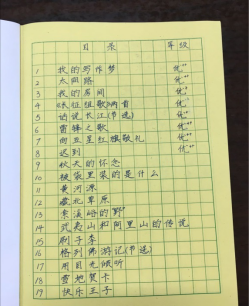 目录 等级
1 我的写作梦 优++
2 太阳路 优++
3 我的房间 优++
4 长征组歌两首 优+
5 话说长江(节选) 优++
6 雷锋之歌 优++
7 向五星红旗敬礼 优++
8 迟到 优++
9 秋天的怀念
10 被袋里装的是什么
11 黄河源
12 藏北草原
13 索溪峪的野
14 武夷山和阿里山的传说
15 刷子李
16 格列佛游记(节选)
17 用目光倾听
18 雪地贺卡
19 快乐王子